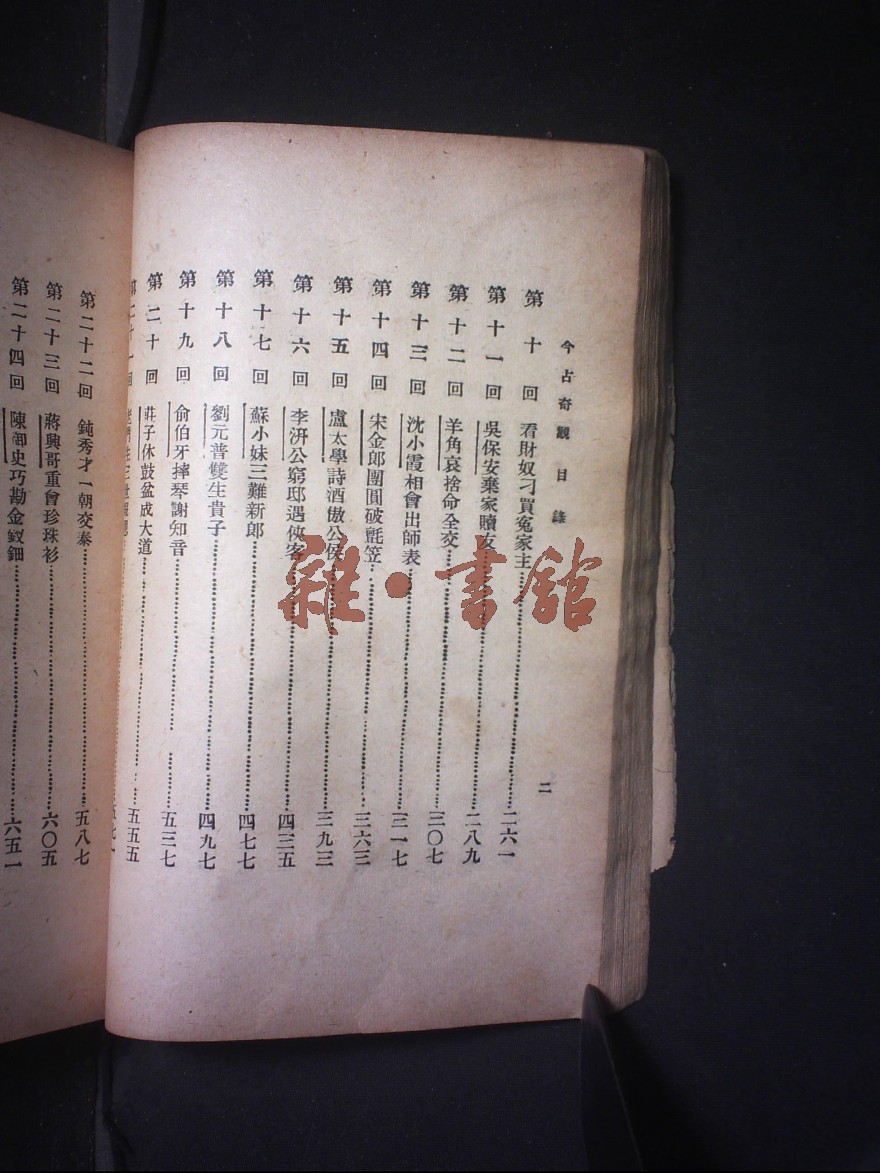 今古奇觀目錄 二
第十回 看財奴刁買冤家主 二六一
第十一回 吳保安棄家贖友 二八九
第十二回 羊角哀捨命全交 三〇七
第十三回 沈小霞相會出師表 三一七
第十四回 宋金郎團圓破氈笠 三六三
第十五回 盧太學詩酒傲公侯 三九三
第十六回 李汧公窮邸遇俠客 四三五
第十七回 蘇小妹三難新郎 四七七
第十八回 劉元普雙生貴子 四九七
第十九回 俞伯牙摔琴謝知音 五三七
第二十回 莊子休鼓盆成大道 五五五
第二十一回
第二十二回 鈍秀才一朝交泰 五八七
第二十三回 蔣興哥重會珍珠衫 六〇五
第二十四回 陳御史巧勘金釵鈿 六五一
雜·書館